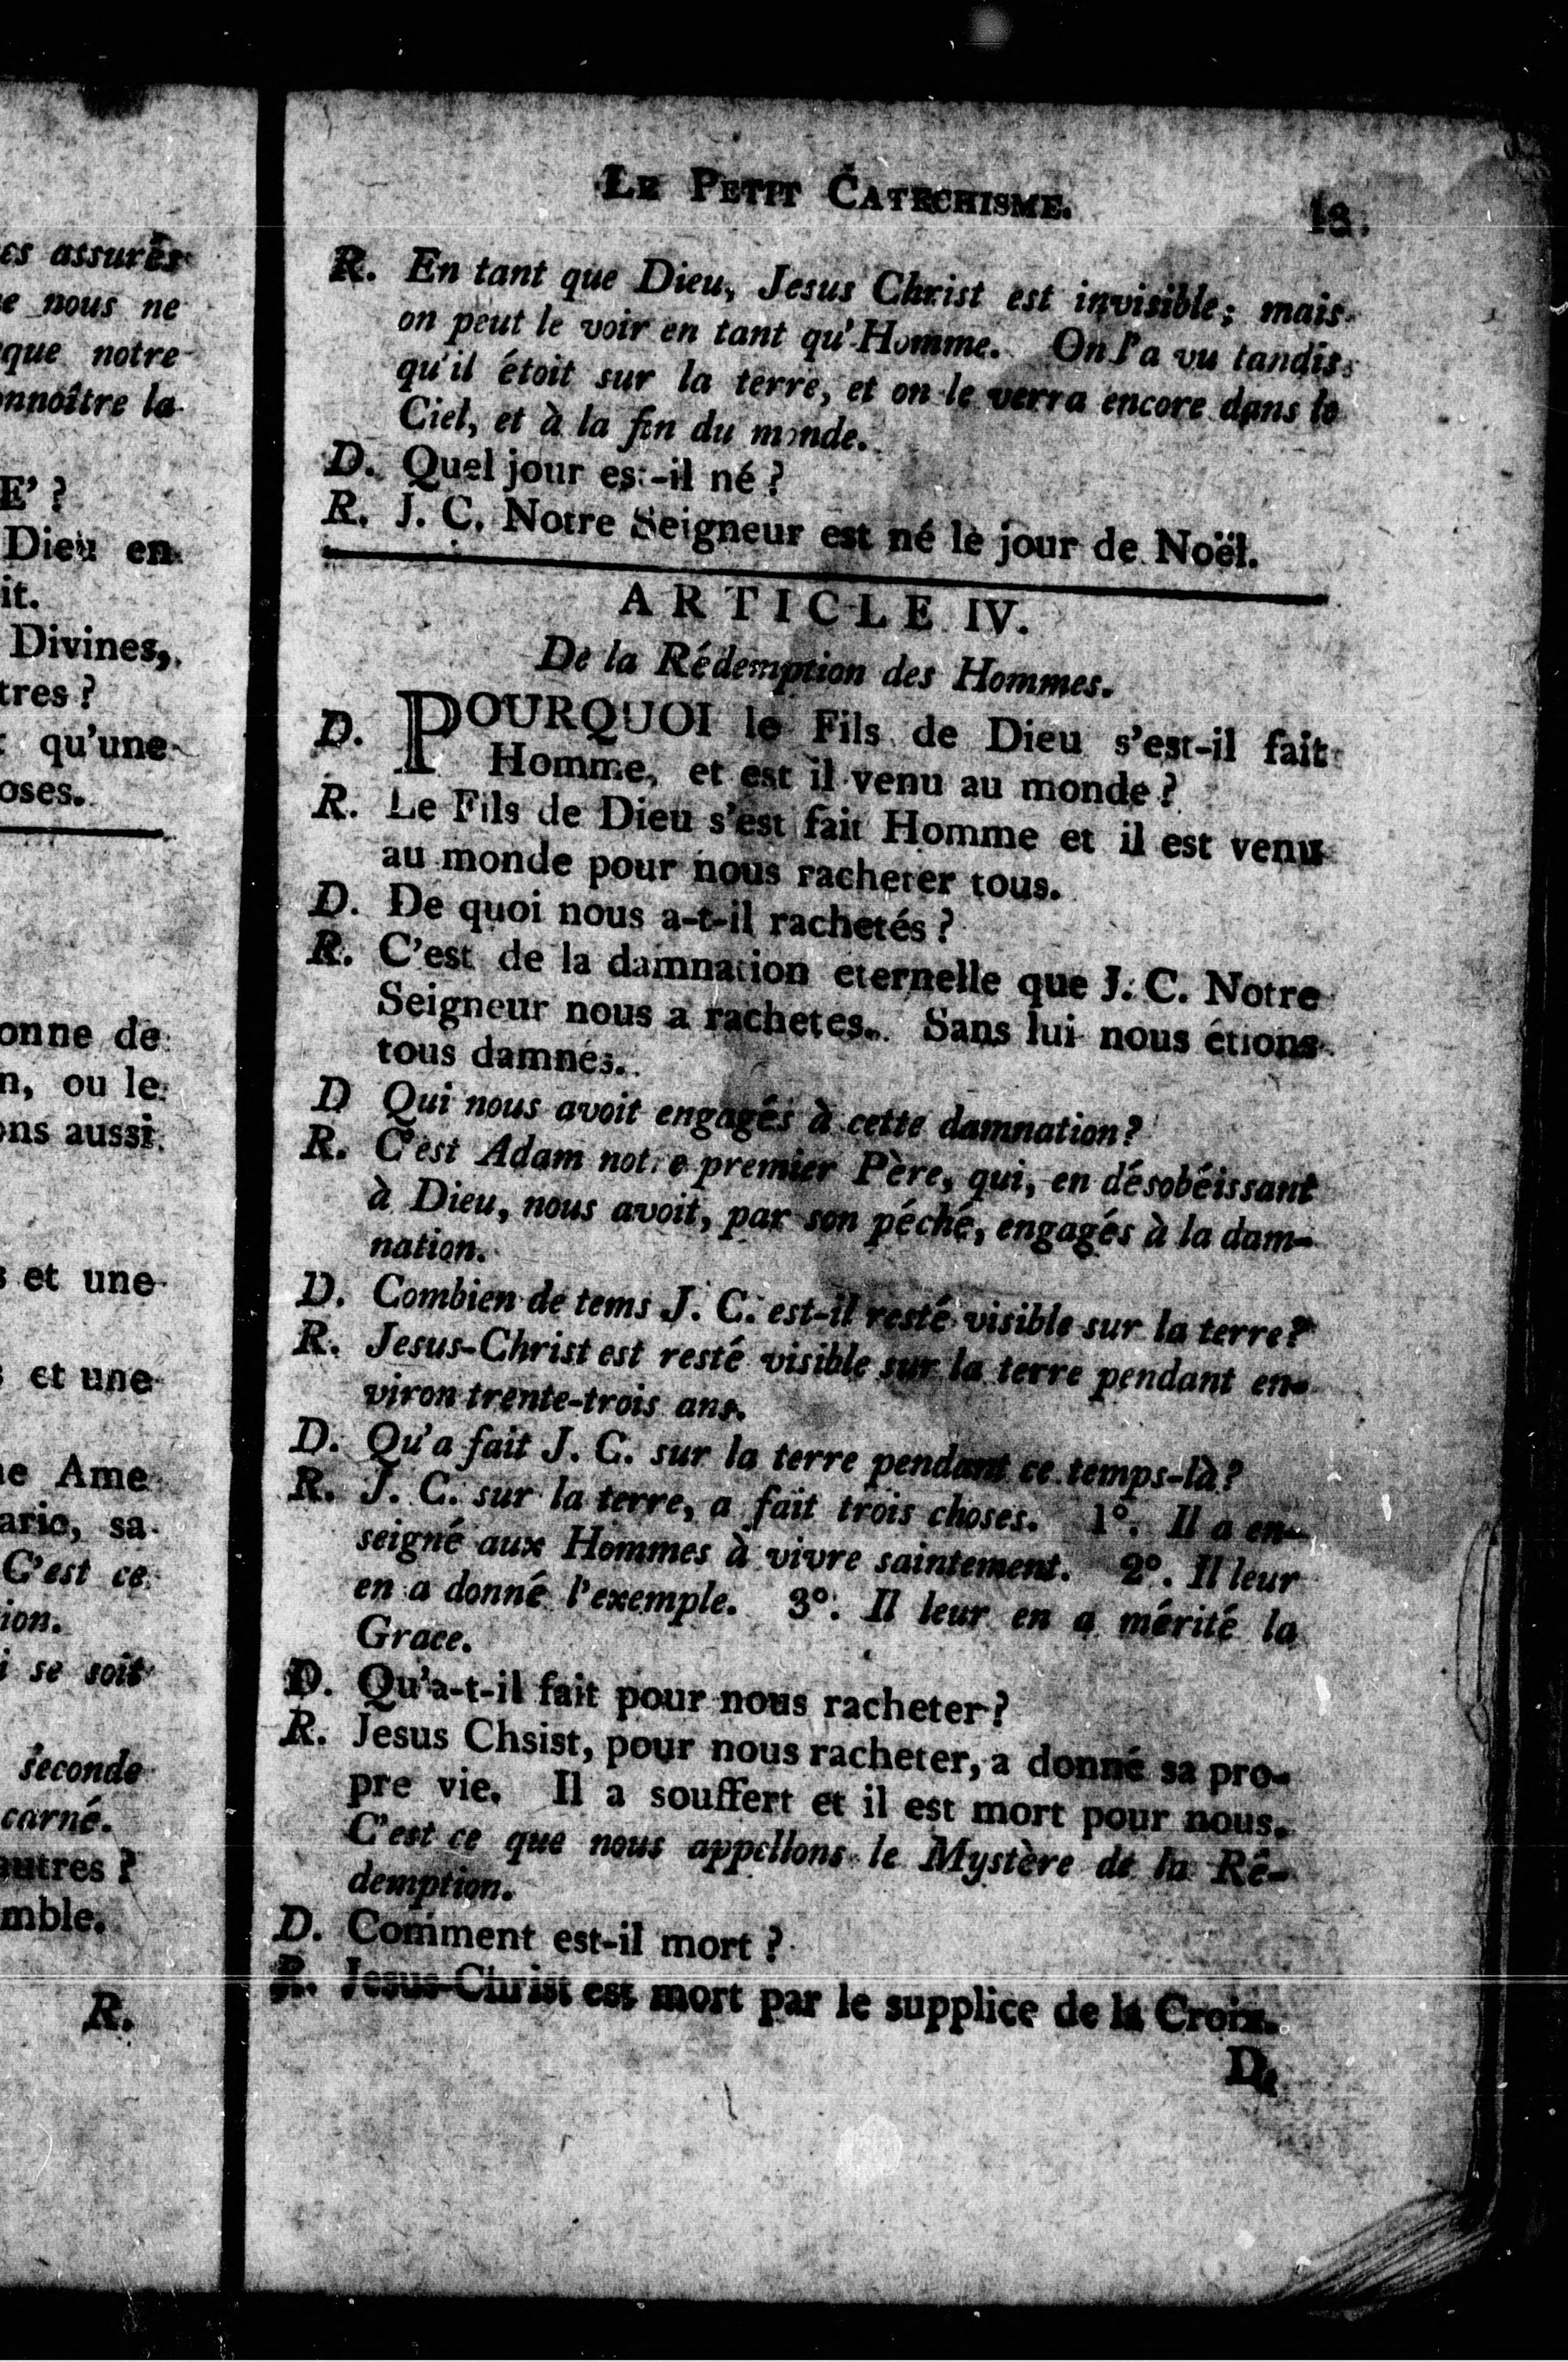 es assurés
e nous ne
que notre
nnoître la
E' ?
Dieu en
it.
Divines,
tres ?
qu'une
oses.
onne de
n, ou le
ons aussi
et une
et une
e Ame
arie, sa
C'est ce
ion.
i se soit
seconde
carné.
autres ?
mble.
R.
LE PETIT CATECHISME. 13.
R. En tant que Dieu, Jesus Christ est invisible; mais
on peut le voir en tant qu'Homme. On l'a vu tandis
qu'il étoit sur la terre, et on le verra encore dans le
Ciel, et à la fin du monde.
D. Quel jour est-il né ?
R. J. C. Notre Seigneur est né le jour de Noël.
ARTICLE IV.
De la Rédemption des Hommes.
D. POURQUOI le Fils de Dieu s'est-il fait
Homme, et est il venu au monde ?
R. Le Fils de Dieu s'est fait Homme et il est venu
au monde pour nous racheter tous.
D. De quoi nous a-t-il rachetés ?
R. C'est de la damnation eternelle que J. C. Notre
Seigneur nous a rachetes. Sans lui nous étions
tous damnés.
D Qui nous avoit engagés à cette damnation ?
R. C'est Adam notre premier Père, qui, en désobéissant
à Dieu, nous avoit, par son péché, engagés à la dam-
nation.
D. Combien de tems J. C. est-il resté visible sur la terre ?
R. Jesus-Christ est resté visible sur la terre pendant en-
viron trente-trois ans.
D. Qu'a fait J. C. sur la terre pendant ce temps-là ?
R. J. C. sur la terre, a fait trois choses. 1°. Il a en-
seigné aux Hommes à vivre saintement. 2°. Il leur
en a donné l'exemple. 3°. Il leur en a mérité la
Grace.
D. Qu'a-t-il fait pour nous racheter ?
R. Jesus Chsist, pour nous racheter, a donné sa pro-
pre vie. Il a souffert et il est mort pour nous.
C'est ce que nous appellons le Mystère de la Ré-
demption.
D. Comment est-il mort ?
R. Jesus-Christ est mort par le supplice de la Croix.
D.